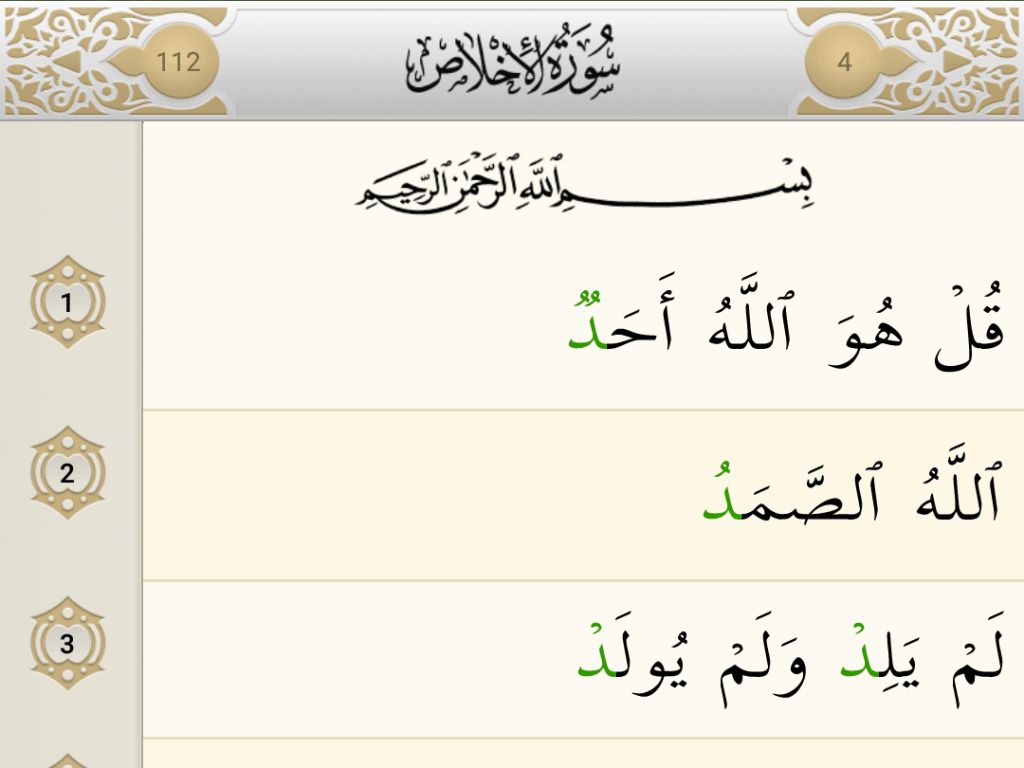 112 سورة الإخلاص 4
بِسْمِ ٱللَّهِ ٱلرَّحْمَٰنِ ٱلرَّحِيمِ
1 قُلْ هُوَ ٱللَّهُ أَحَدٌ
2 ٱللَّهُ ٱلصَّمَدُ
3 لَمْ يَلِدْ وَلَمْ يُولَدْ